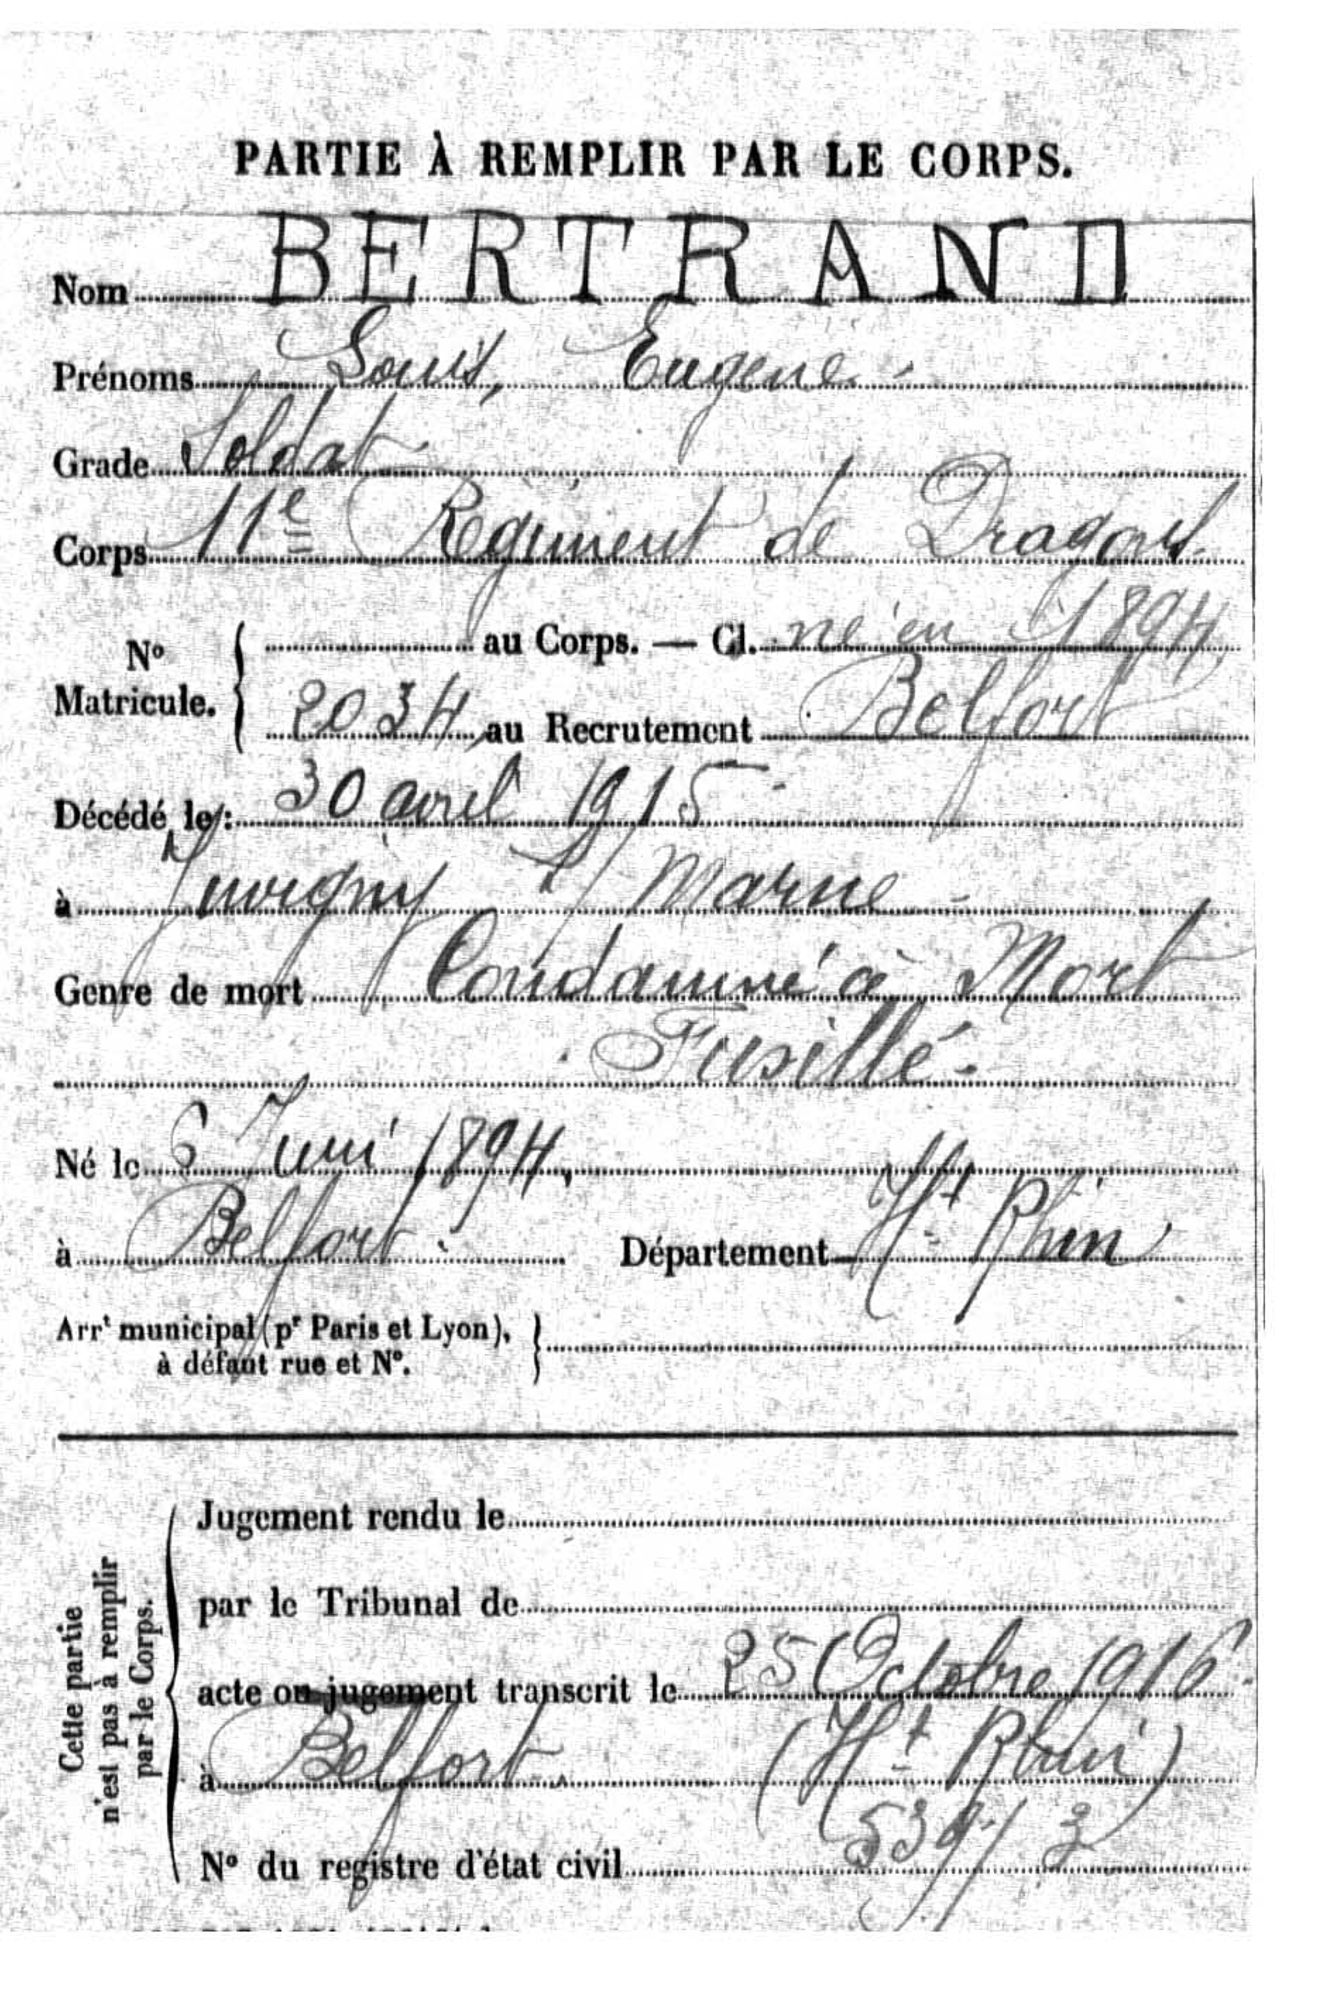 PARTIE À REMPLIR PAR LE CORPS.
Nom BERTRAND
Prénoms Louis, Eugene
Grade Soldat
Corps 11e Régiment de Dragons
No Matricule. au Corps. — Cl. né en 1894
2034 au Recrutement Belfort
Décédé le : 30 avril 1915
à Juvigny s/ Marne
Genre de mort Condamné à Mort
Fusillé
Né le 6 Juin 1894,
à Belfort Département Ht Rhin
Arrt municipal (pr Paris et Lyon),
à défaut rue et No.
Cette partie
n'est pas à remplir
par le Corps.
Jugement rendu le
par le Tribunal de
acte ou jugement transcrit le 25 Octobre 1916
à Belfort. (Ht Rhin)
No du registre d'état civil 539/